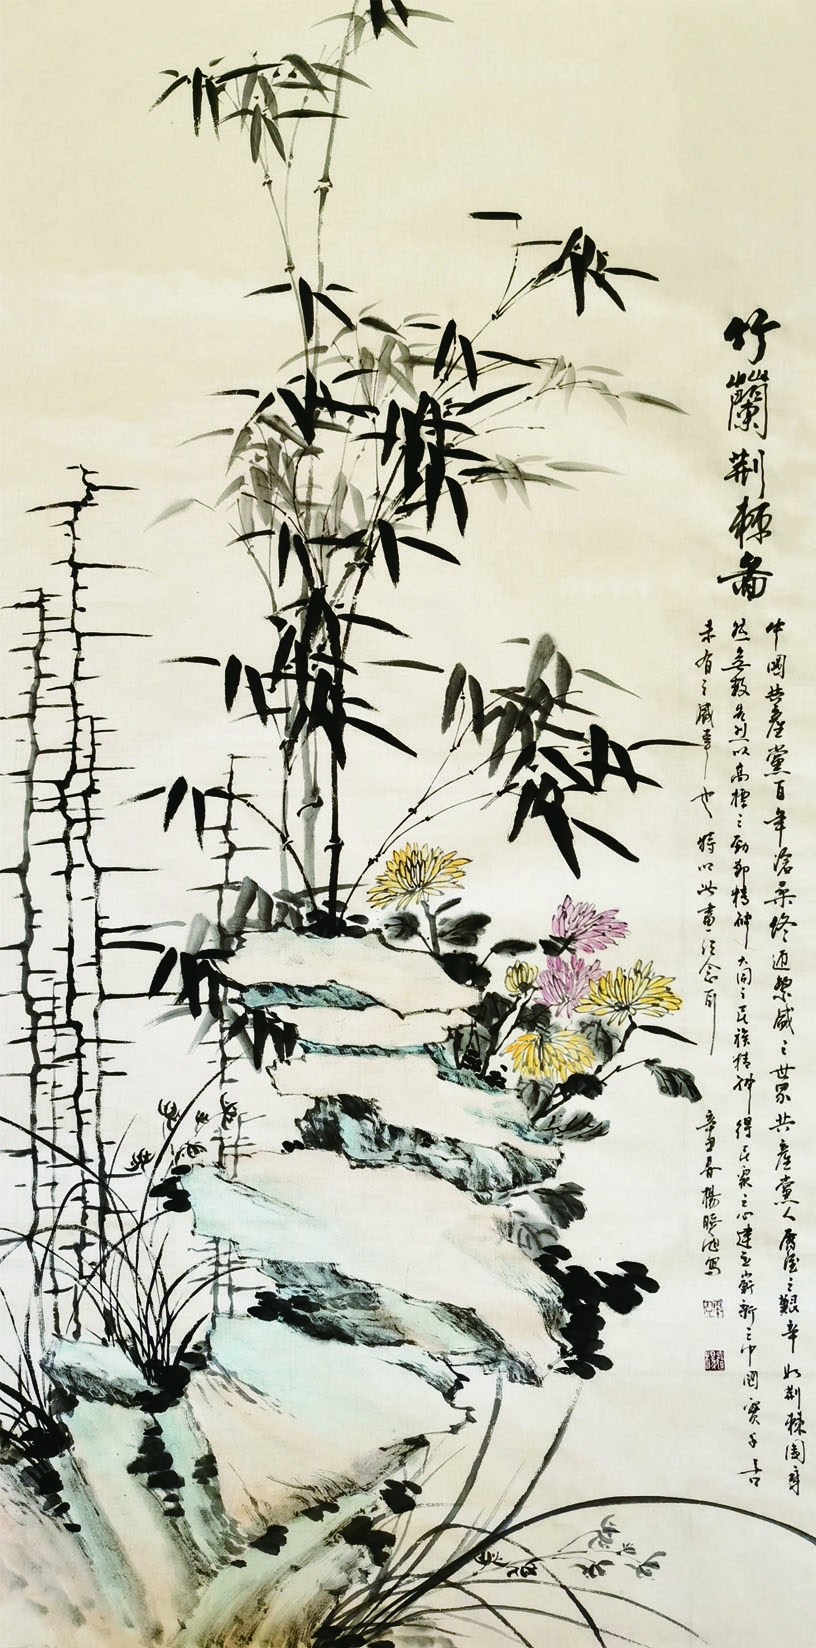 竹蘭荆棘圖
中國共產黨百年滄桑終迎繁盛之世界共產黨人歷之艱辛如荆棘圍身
然無數先烈以高標之勁節精神大同之民族精神得民衆之心建立嶄新之中國實千古
未有之盛事也特以此畫紀念耳
辛丑春楊曉池寫